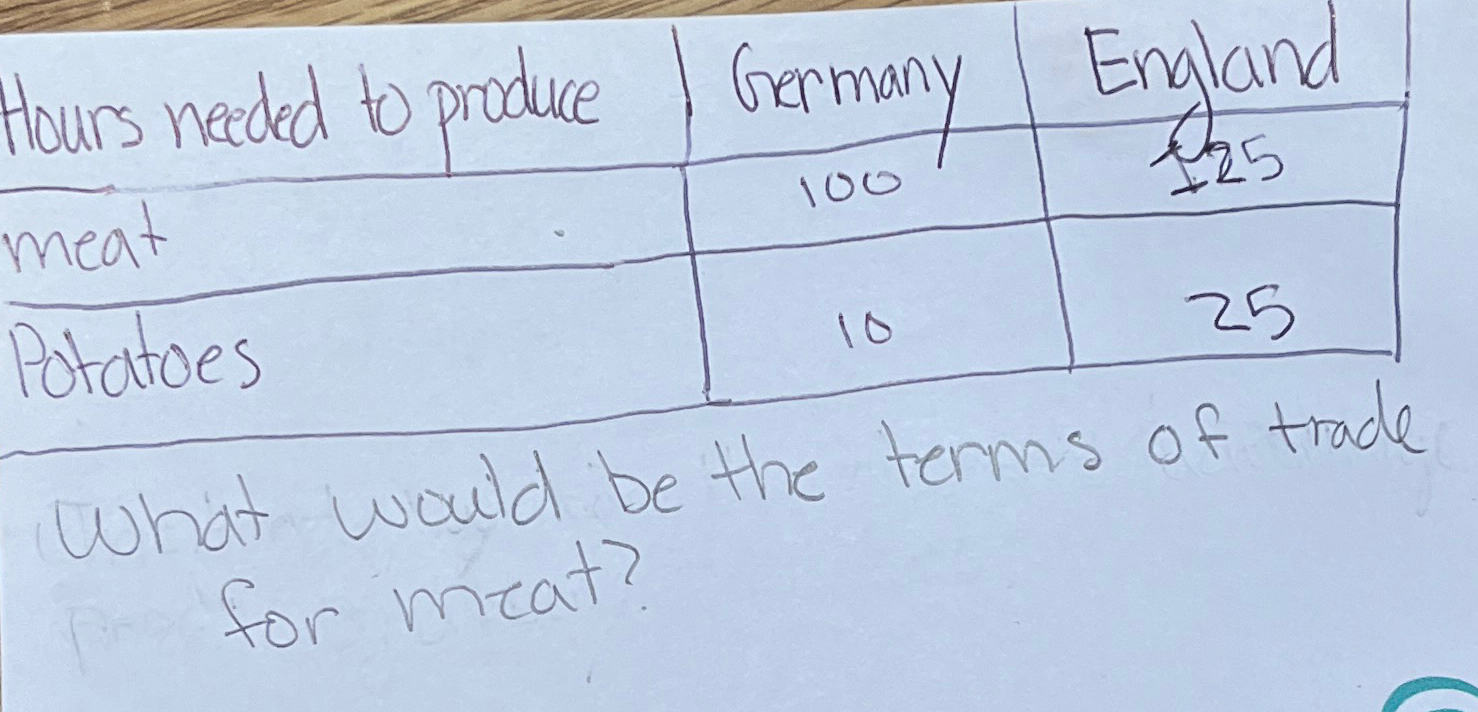 Hours needed to produce Germany England
meat 100 125
Potatoes 10 25
What would be the terms of trade
for meat?